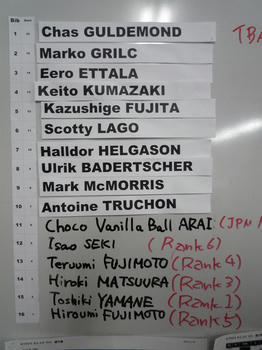 Bib
1 Chas GULDEMOND
TBA
2 Marko GRILC
3 Eero ETTALA
4 Keito KUMAZAKI
5 Kazushige FUJITA
6 Scotty LAGO
7 Halldor HELGASON
8 Ulrik BADERTSCHER
9 Mark McMORRIS
10 Antoine TRUCHON
11 Choco Vanilla Ball ARAI (JPN
12 Isao SEKI (Rank 6)
13 Teruumi FUJIMOTO (Rank 4)
14 Hiroki MATSUURA (Rank 3)
15 Toshiki YAMANE (Rank 1)
16 Hiroumi FUJIMOTO (Rank 5)